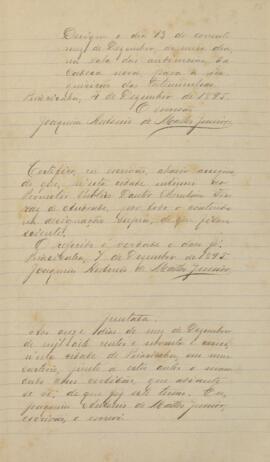 Designo o dia 13 do corrente
mez de Dezembro, ao meio dia,
na sala das audiencias da
Cadeia nova para a
das testemunhas
Piracicaba, 4 de Dezembro de 1895
O escrivão
Joaquim Antonio de Mattos Junior
Certifico, eu escrivão, abaixo assigna
do que, n'esta cidade intimei ao
Promotor Publico Doutor
de todo o conteudo
na designação supra, do que ficou
sciente.
O referido é verdade e dou fé.
Piracicaba, 7 de Dezembro de 1895
Joaquim Antonio de Mattos Junior
Juntada.
Aos onze dias do mez de Dezembro
de mil oito centos e noventa e cinco,
n'esta cidade de Piracicaba, em meu
cartorio, junto a estes autos o man
dado com certidão, que adiante
se vê; do que fiz este termo. Eu,
Joaquim Antonio de Mattos Junior,
escrivão, o escrevi